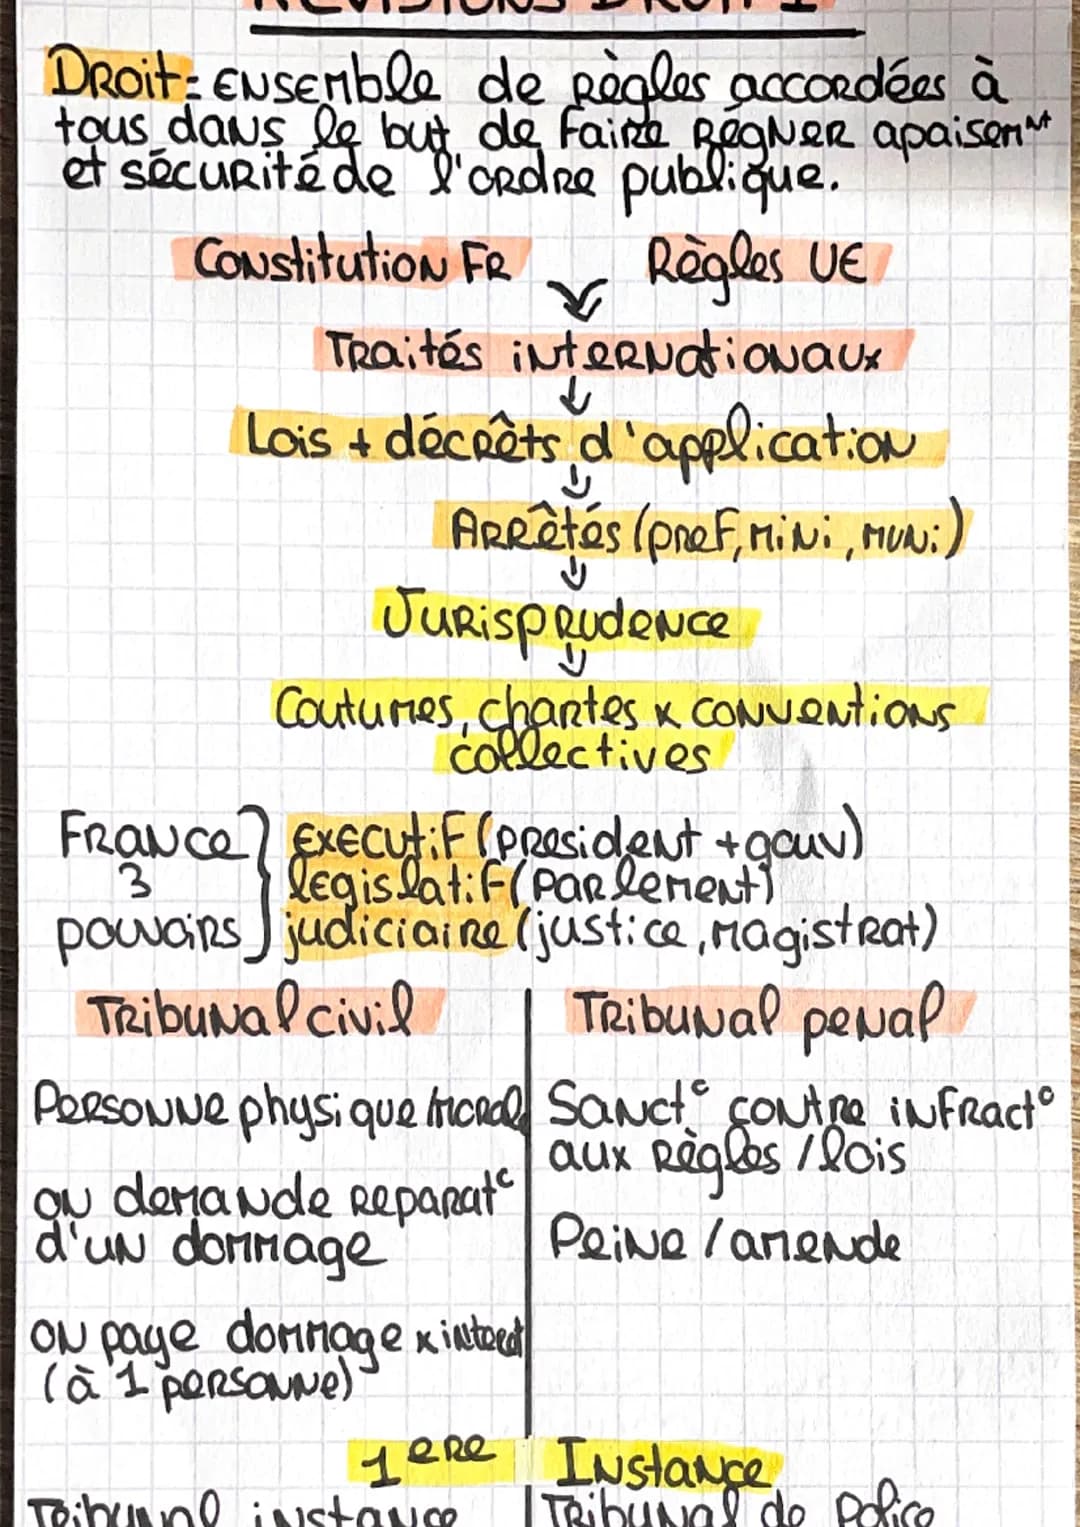 RÉVISIONS DROIT 1
Droit = Ensemble de règles accordées à
tous dans le but de faire régner apaisemnt
et sécurité de l'ordre publique.
Constitution FR Règles UE
Traités internationaux
Lois + décrêts d'application
Arrêtés (pref, mini, muni)
Jurisprudence
Coutumes, chartes x conventions
collectives
France } executif (president + gouv)
3 législatif (parlement)
pouvoirs judiciaire (justice, magistrat)
Tribunal civil
Tribunal penal
Personne physique/moral
on demande reparat°
d'un dommage
on paye dommage x interet
(à 1 personne)
Sanct° contre infract°
aux règles / lois
Peine / amende
1ere Instance
Tribunal instance
Tribunal de Police